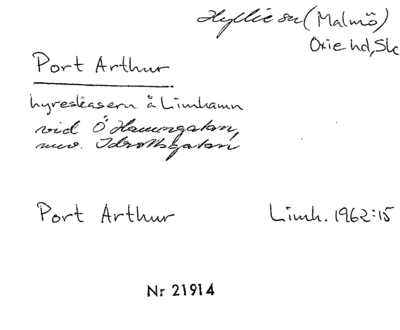 Hyllie sn (Malmö)
Oxie hd, Sk
Port Arthur
hyreskasern å Limhamn
vid Ö Hamngatan,
nuv. Idrottsgatan
Port Arthur Limh. 1962:15
Nr 21914